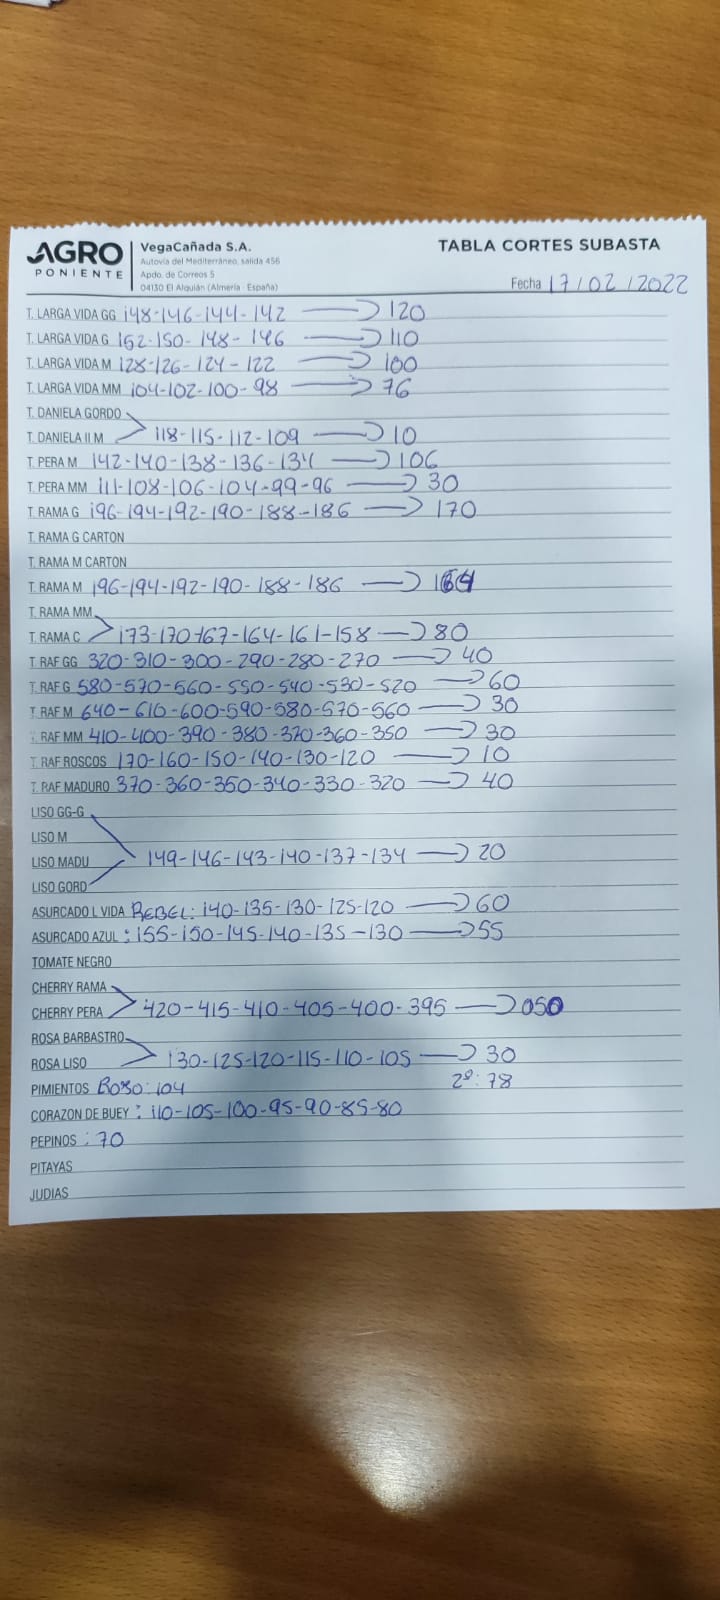 AGRO
PONIENTE
VegaCañada S.A.
Autovía del Mediterráneo, salida 456
Apdo. de Correos 5
04130 El Alquián (Almería - España)
TABLA CORTES SUBASTA
Fecha 17/02/2022
T. LARGA VIDA GG 148-146-144-142 → 120
T. LARGA VIDA G 152-150-148-146 → 110
T. LARGA VIDA M 128-126-124-122 → 100
T. LARGA VIDA MM 104-102-100-98 → 76
T. DANIELA GORDO
T. DANELA II M 118-115-112-109 → 10
T. PERA M 142-140-138-136-134 → 106
T. PERA MM 111-108-106-104-99-96 → 30
T. RAMA G 196-194-192-190-188-186 → 170
T. RAMA G CARTON
T. RAMA M CARTON
T. RAMA M 196-194-192-190-188-186 → 164
T. RAMA MM
T. RAMA C 173-170-167-164-161-158 → 80
T. RAF GG 320-310-300-290-280-270 → 40
T. RAF G 580-570-560-550-540-530-520 → 60
T. RAF M 640-610-600-590-580-570-560 → 30
T. RAF MM 410-400-390-380-370-360-350 → 30
T. RAF ROSCOS 170-160-150-140-130-120 → 10
T. RAF MADURO 370-360-350-340-330-320 → 40
LISO GG-G
LISO M
LISO MADU 149-146-143-140-137-134 → 20
LISO GORD
ASURCADO L VIDA REBEL: 140-135-130-125-120 → 60
ASURCADO AZUL: 155-150-145-140-135-130 → 55
TOMATE NEGRO
CHERRY RAMA
CHERRY PERA 420-415-410-405-400-395 → 050
ROSA BARBASTRO
ROSA LISO 130-125-120-115-110-105 → 30
PIMIENTOS ROJO: 104 2º: 78
CORAZON DE BUEY: 110-105-100-95-90-85-80
PEPINOS: 70
PITAYAS
JUDIAS